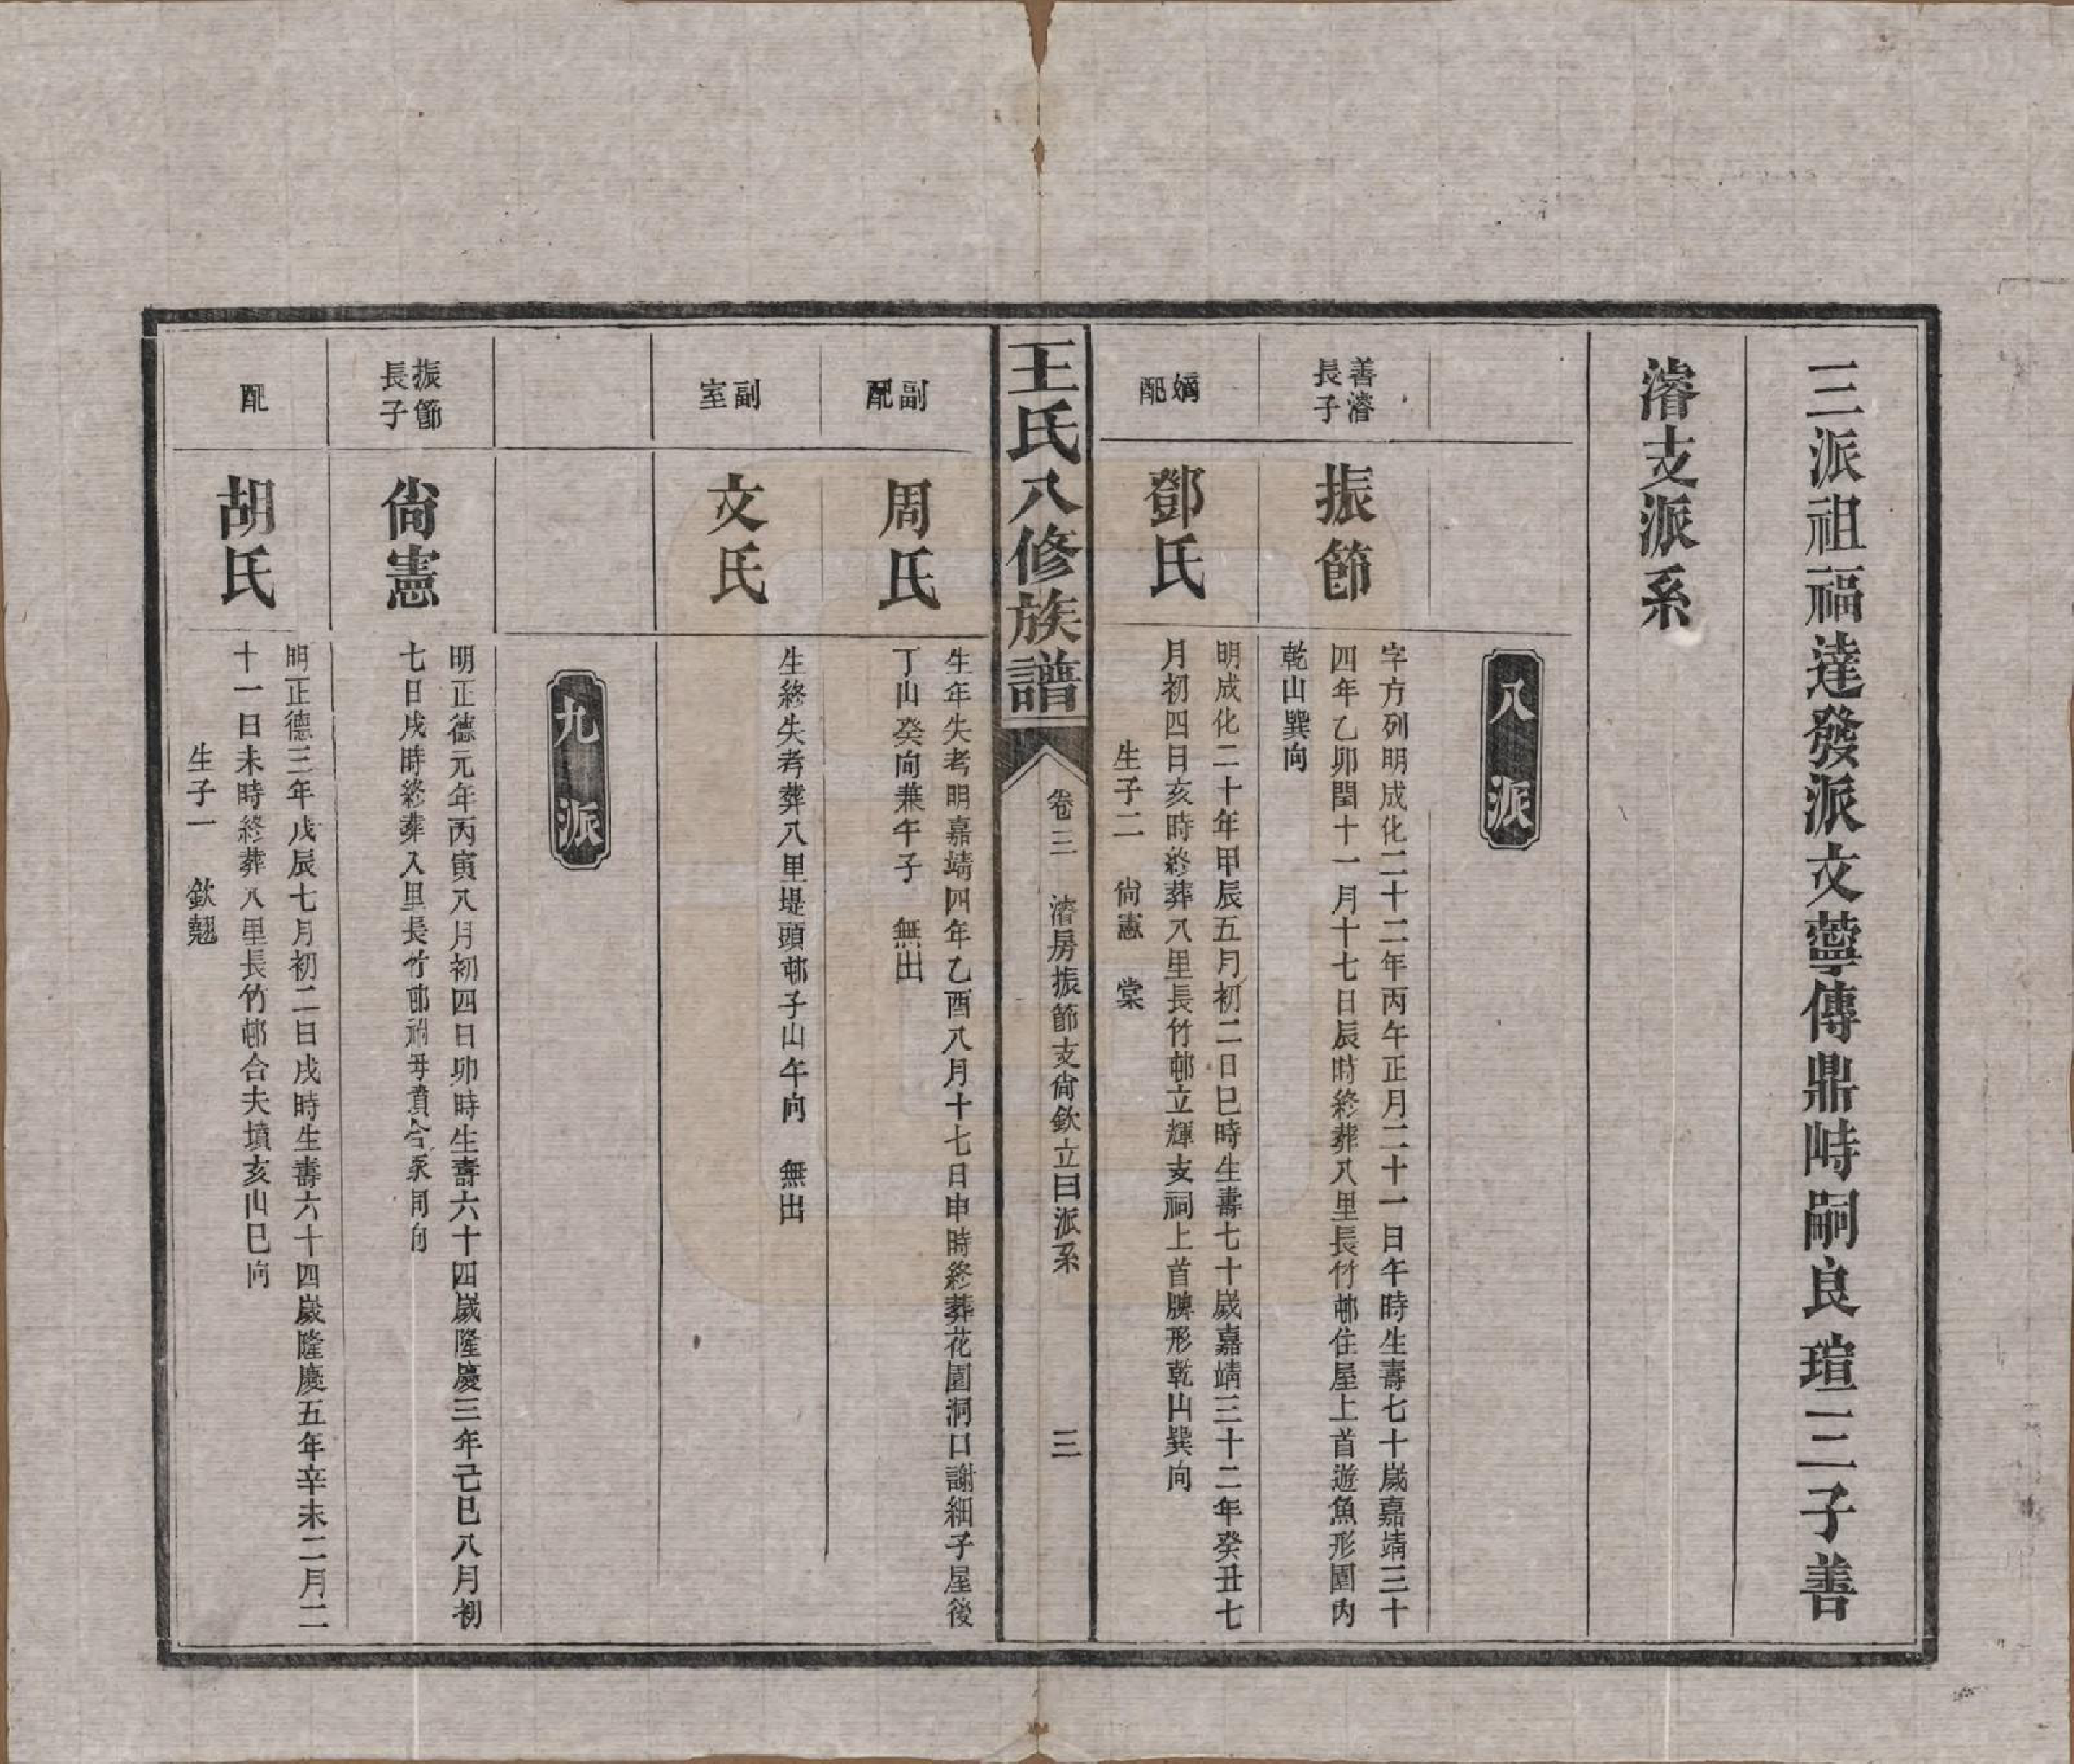 三派祖福達發派文薴傳鼎峙嗣良瑄三子善
濬支派系
八派
善濬
長子
振節
字方列明成化二十二年丙午正月二十一日午時生壽七十歲嘉靖三十
四年乙卯閏十一月十七日辰時終葬八里長竹邨住屋上首遊魚形園內
乾山巽向
嫡
配
鄧氏
明成化二十年甲辰五月初二日巳時生壽七十歲嘉靖三十二年癸丑七
月初四日亥時終葬八里長竹邨立輝支祠上首脾形乾山巽向
生子二 尙憲 棠
王氏八修族譜
卷三 濬房振節支尙欽立曰派系 三
副
配
周氏
生年失考明嘉靖四年乙酉八月十七日申時終葬花園洞口謝細子屋後
丁山癸向兼午子 無出
副
室
文氏
生終失考葬八里堤頭邨子山午向 無出
九派
振節
長子
尙憲
明正德元年丙寅八月初四日卯時生壽六十四歲隆慶三年己巳八月初
七日戌時終葬八里長竹邨祔母墳合冢同向
配
胡氏
明正德三年戊辰七月初二日戌時生壽六十四歲隆慶五年辛未二月二
十一日未時終葬八里長竹邨合夫墳亥山巳向
生子一 欽翹